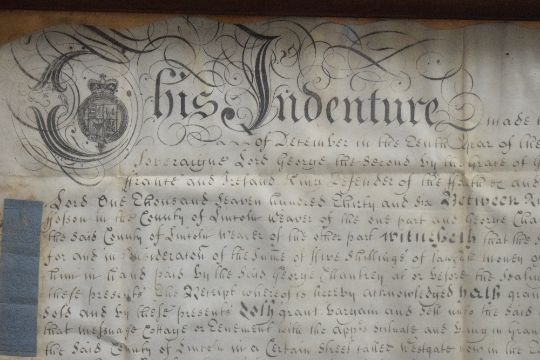 This Indenture made
Day of December in the Tenth Year of the
Soveraigne Lord George the Second by the grace of
France and Ireland King Defender of the Faith &c and
Lord One Thousand Seaven hundred Thirty and Six Between
in the County of Lincoln Weaver of the one part and George
the said County of Lincoln Weaver of the other part Witnesseth that the
for and in Consideration of the Sume of five Shillings of lawfull money
him in hand paid by the said George Chantrey at or before the
these presents the Receipt whereof is hereby acknowledged Hath
Sold and by these presents Doth grant bargain and Sell unto the said
that messuage Cottage or Tenement with the Situate and being in
the said County of Lincoln in a Certain street called Westgate now in the